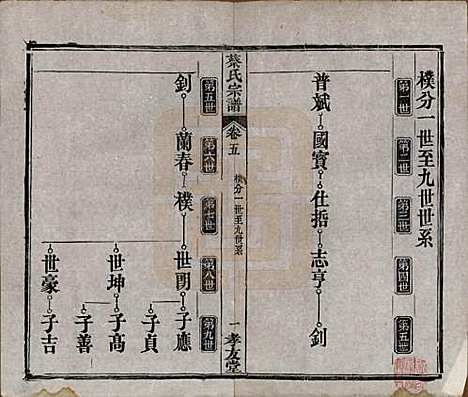 樸分一世至九世世系
第一世
第二世
第三世
第四世
第五世
普斌 國寶 仕指 志亨 釗
蔡氏宗譜
卷五
樸分一世至九世系
一
孝友堂
第五世
第六世
第七世
第八世
第九世
釗 蘭春 樸 世明 子應
子貞
世坤 子高
子善
世豪 子吉